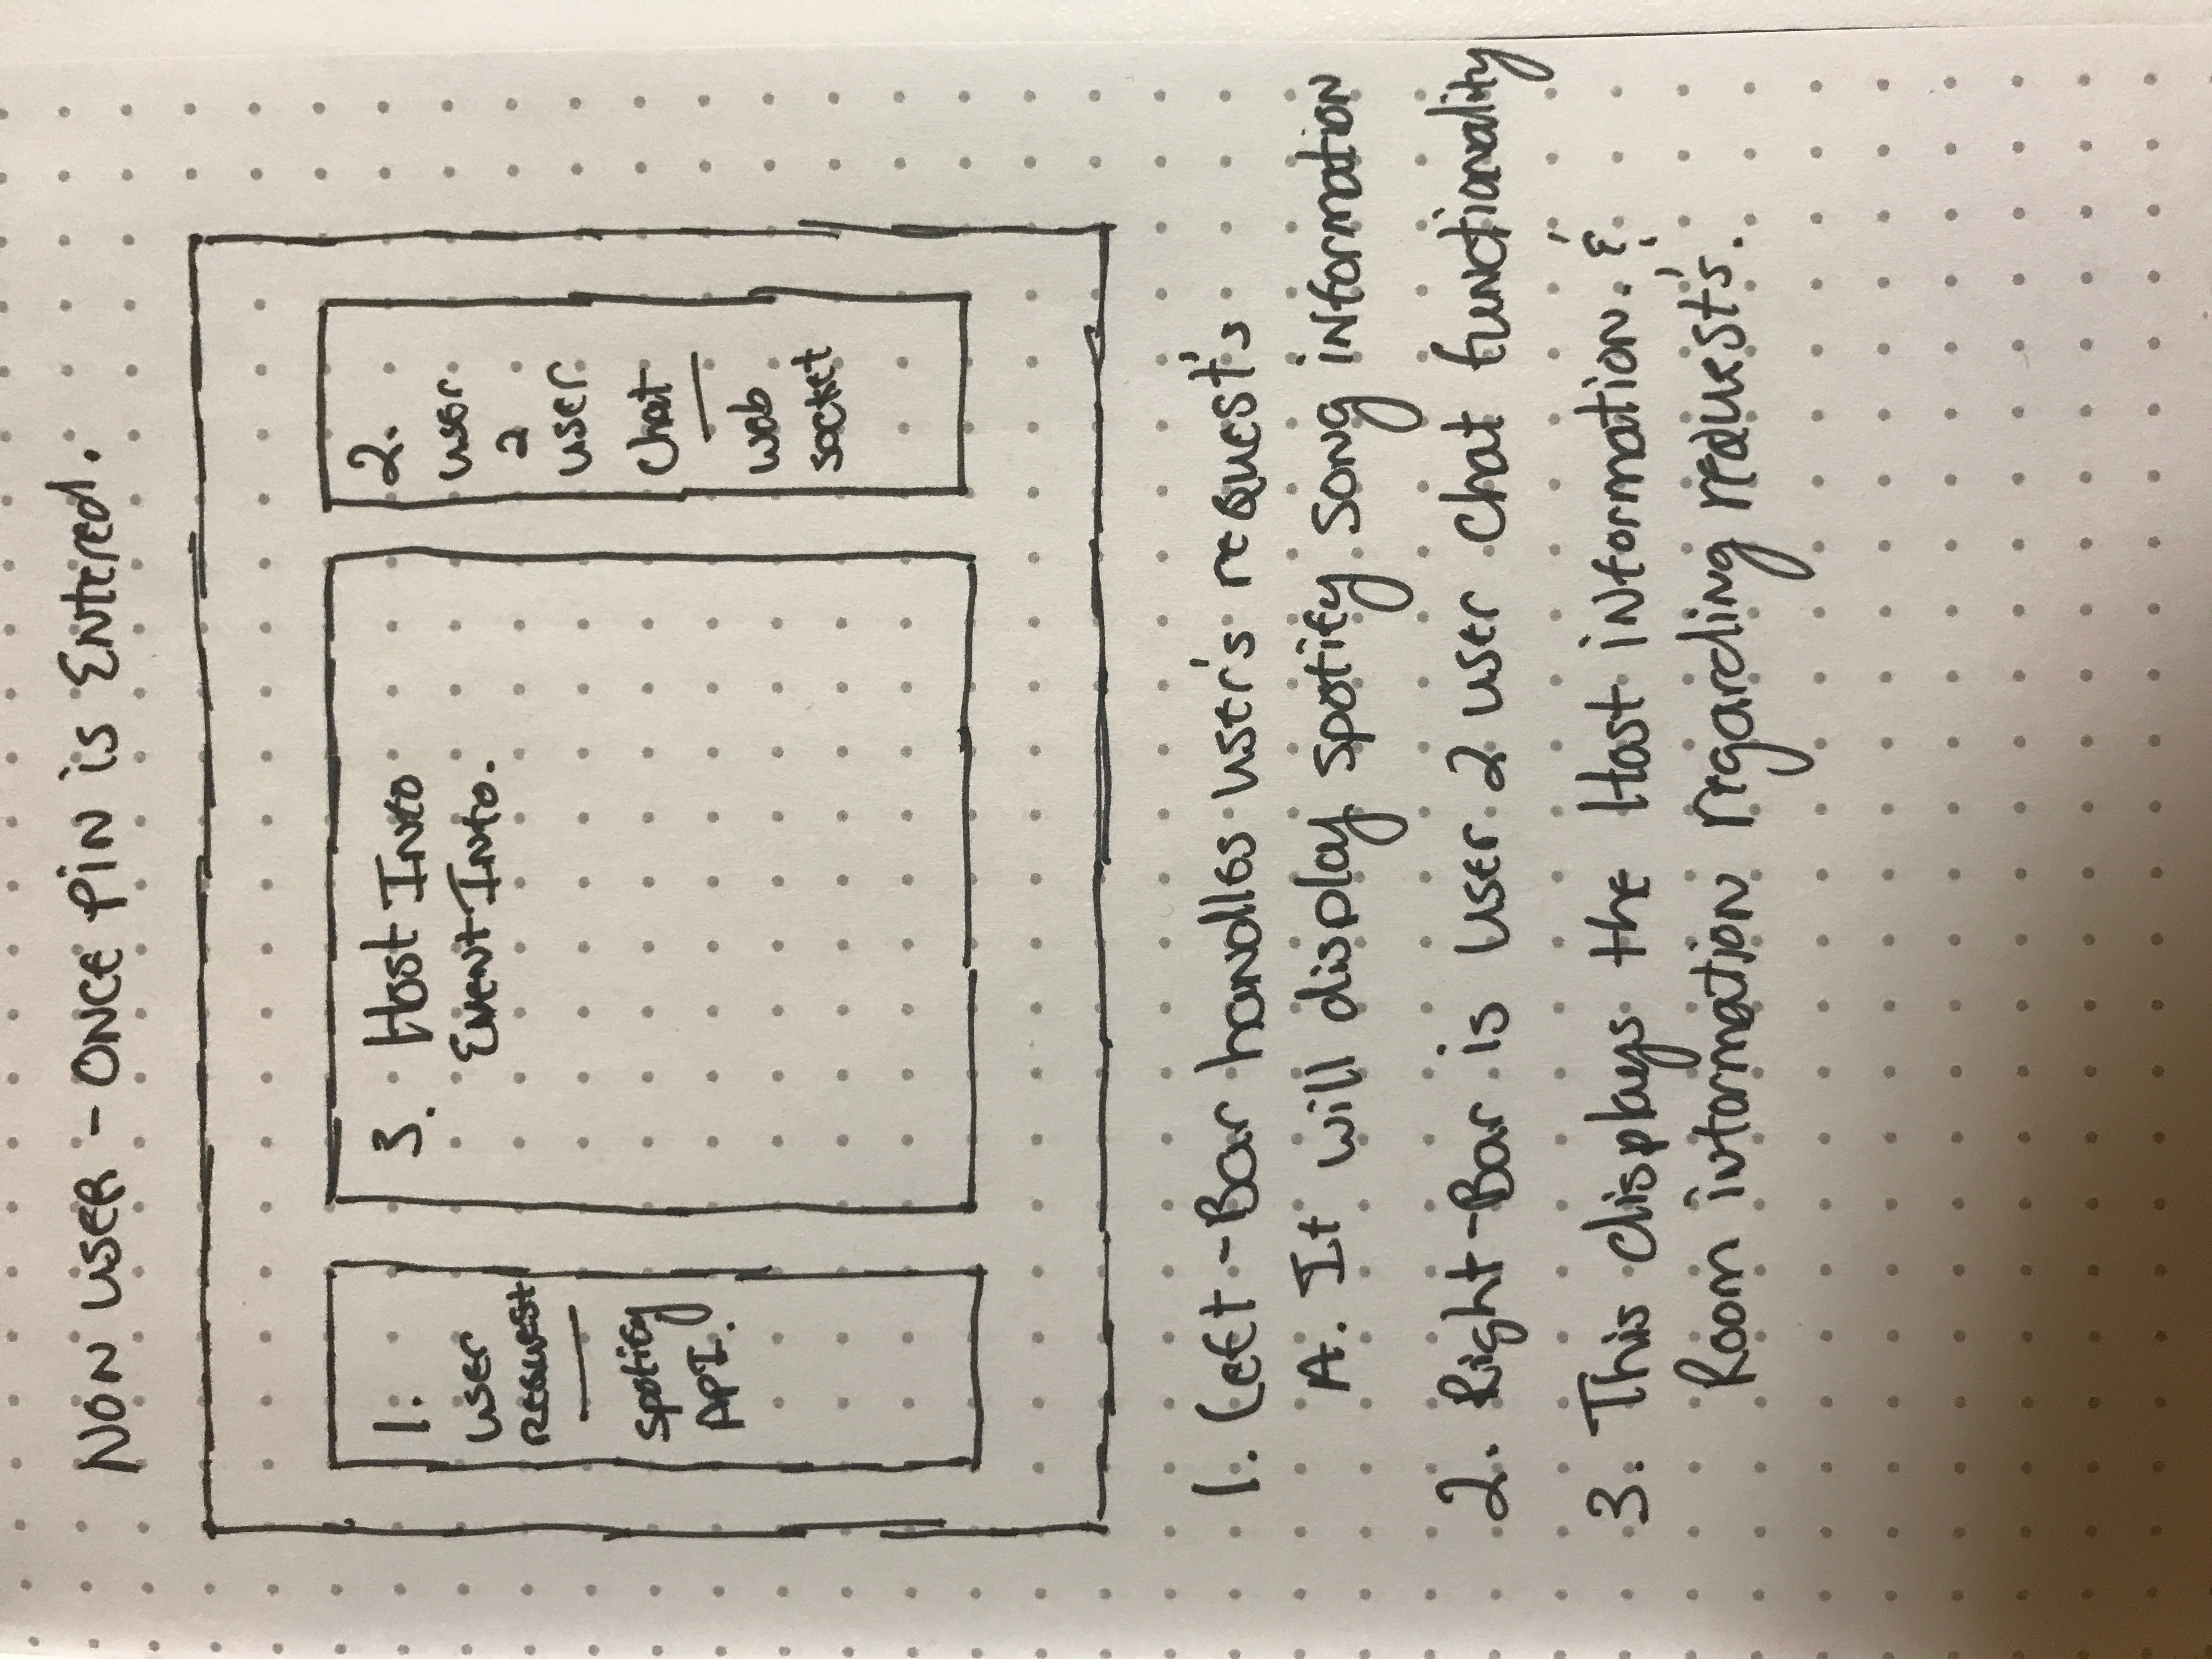 NON USER - ONCE PIN is Entered.
1.
user
Request
Spotify
API.
3. Host Info
Event Info.
2.
user
2
user
Chat
web
socket
1. Left-Bar handles user's request's
A. It will display spotify song information
2. Right-Bar is user 2 user chat functionality
3. This displays the Host information &
Room information regarding request's.